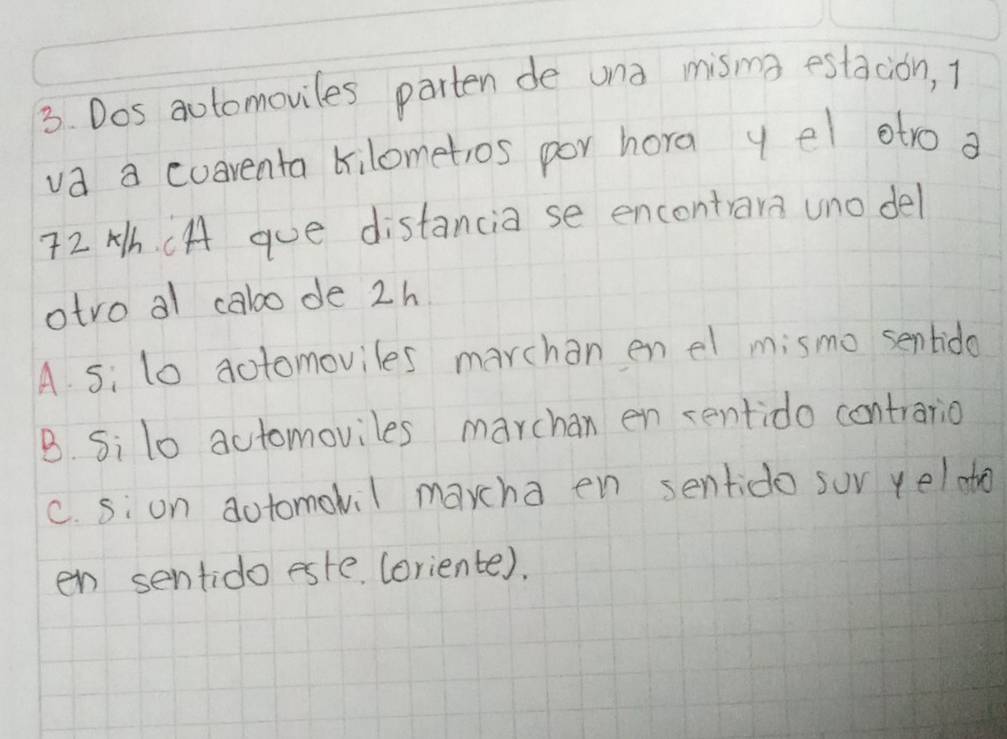 3. Dos automoviles parten de una misma estación, 1
va a cuarenta kilometros por hora y el otro a
72 k/h. ¿A que distancia se encontrara uno del
otro al cabo de 2h
A. Si lo automoviles marchan en el mismo sentido
B. Si lo automoviles marchan en sentido contrario
C. Si un automovil marcha en sentido sur y el otro
en sentido este. (oriente).